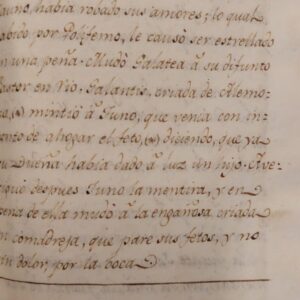 auno, había robado sus amores; lo qual
abido por Polifemo, le causó ser estrellado
n una peña. Mudó Galatea à su difunto
Pastor en Rio, Galantis, criada de Alcmo-
, (a) mintió à Juno, que venía con in-
tento de ahogar el feto, (a) diciendo, que ya
su Dueña había dado à luz un hijo. Ave-
riguó despues Juno la mentira, y en
pena de ella mudó à la engañosa criada
n comadreja, que pare sus fetos, y no
in dolor, por la boca